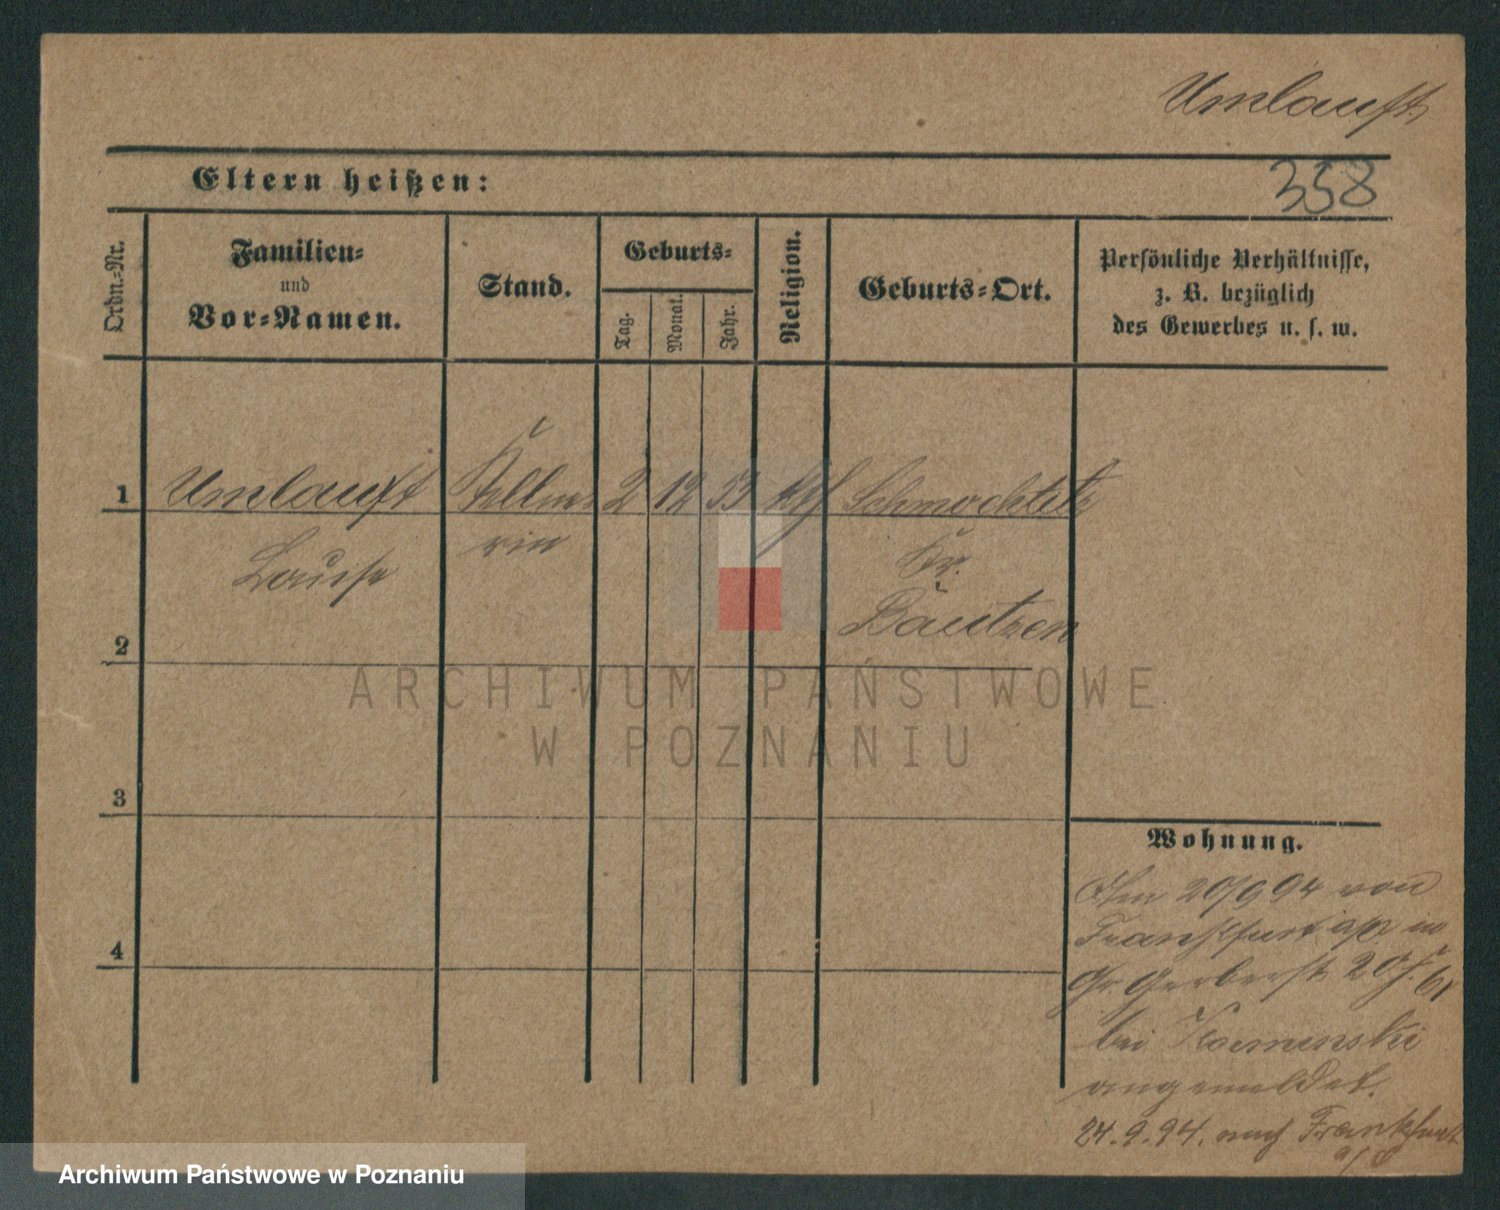 Umlauft
Eltern heißen:
358
Ordn.-Nr.
Familien-
und
Vor-Namen.
Stand.
Geburts-
Tag.
Monat.
Jahr.
Religion.
Geburts-Ort.
Persönliche Verhältnisse,
z. B. bezüglich
des Gewerbes u. s. w.
1 Umlauft Kellne- 2 12 53 kth Schmochtitz
rin
Louise
Kr.
Bautzen
2
ARCHIWUM PAŃSTWOWE
W POZNANIU
3
4
Wohnung.
Am 20/9 94 von
Frankfurt a/O in
Gr. Gerberstr
bei Kaminski
angemeldet.
24.9.94. nach Frankfurt
a/O
Archiwum Państwowe w Poznaniu